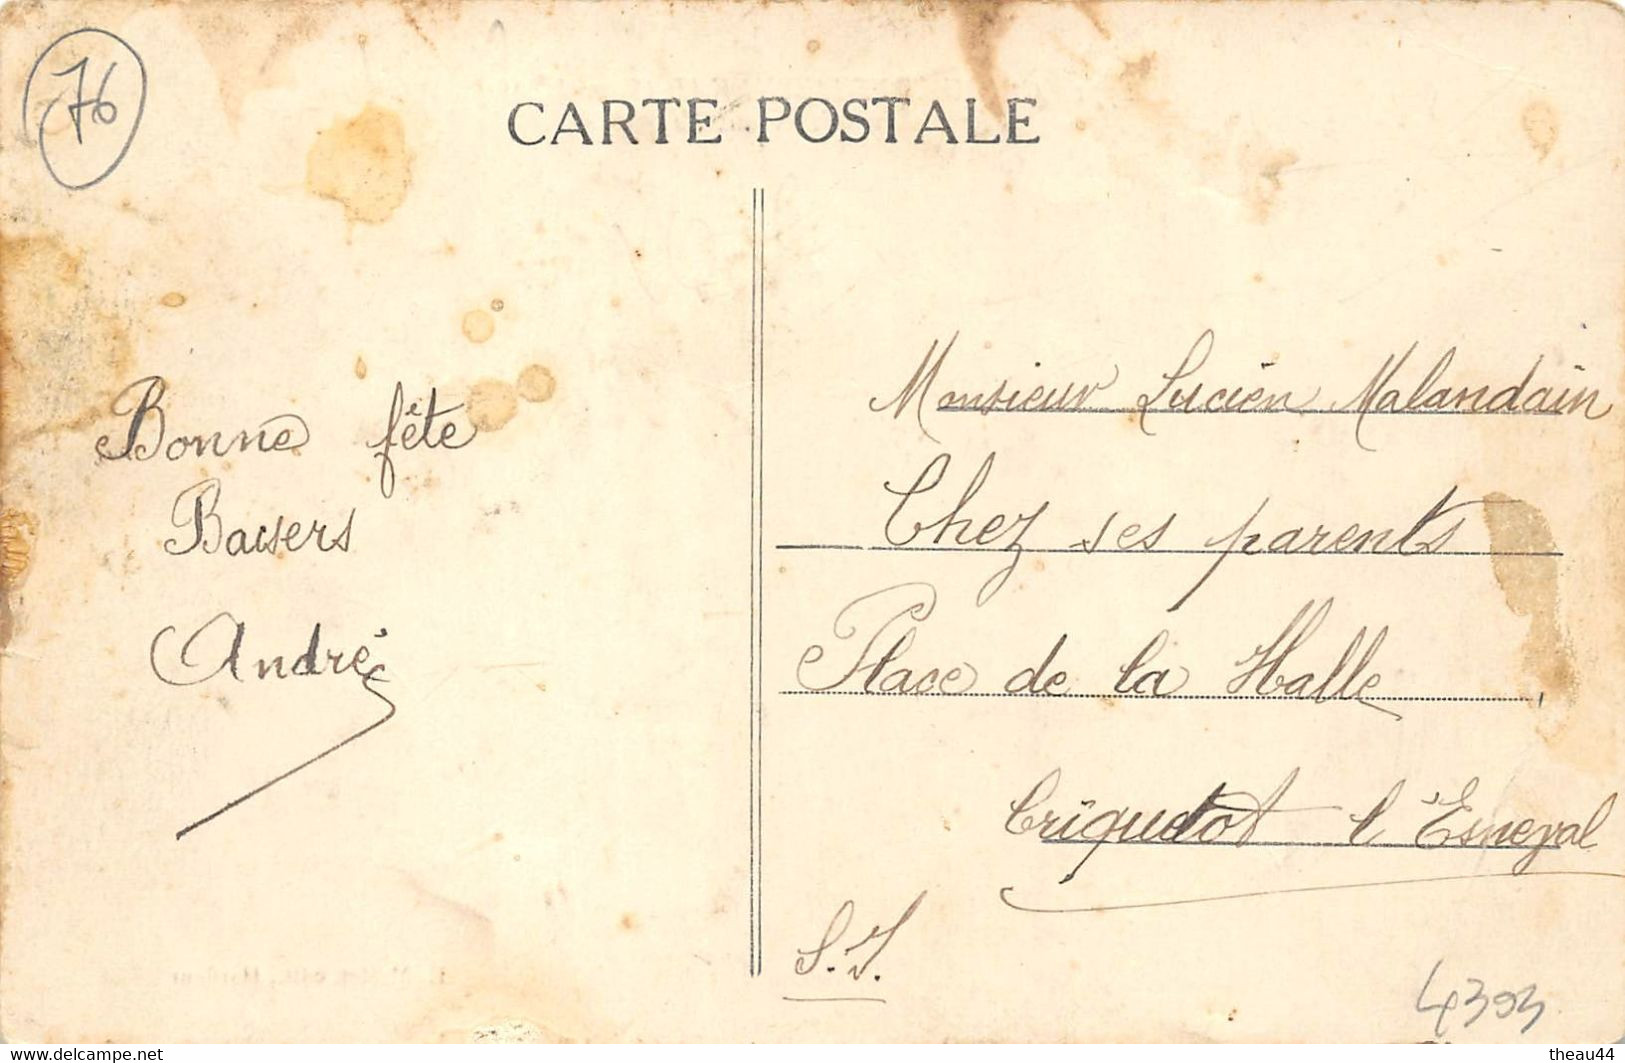 76
CARTE POSTALE
Bonne fête
Baisers
André
Monsieur Lucien Malandain
Chez ses parents
Place de la Halle
Criquetot l'Esneval
S. I.
4393
www.delcampe.net
theau44